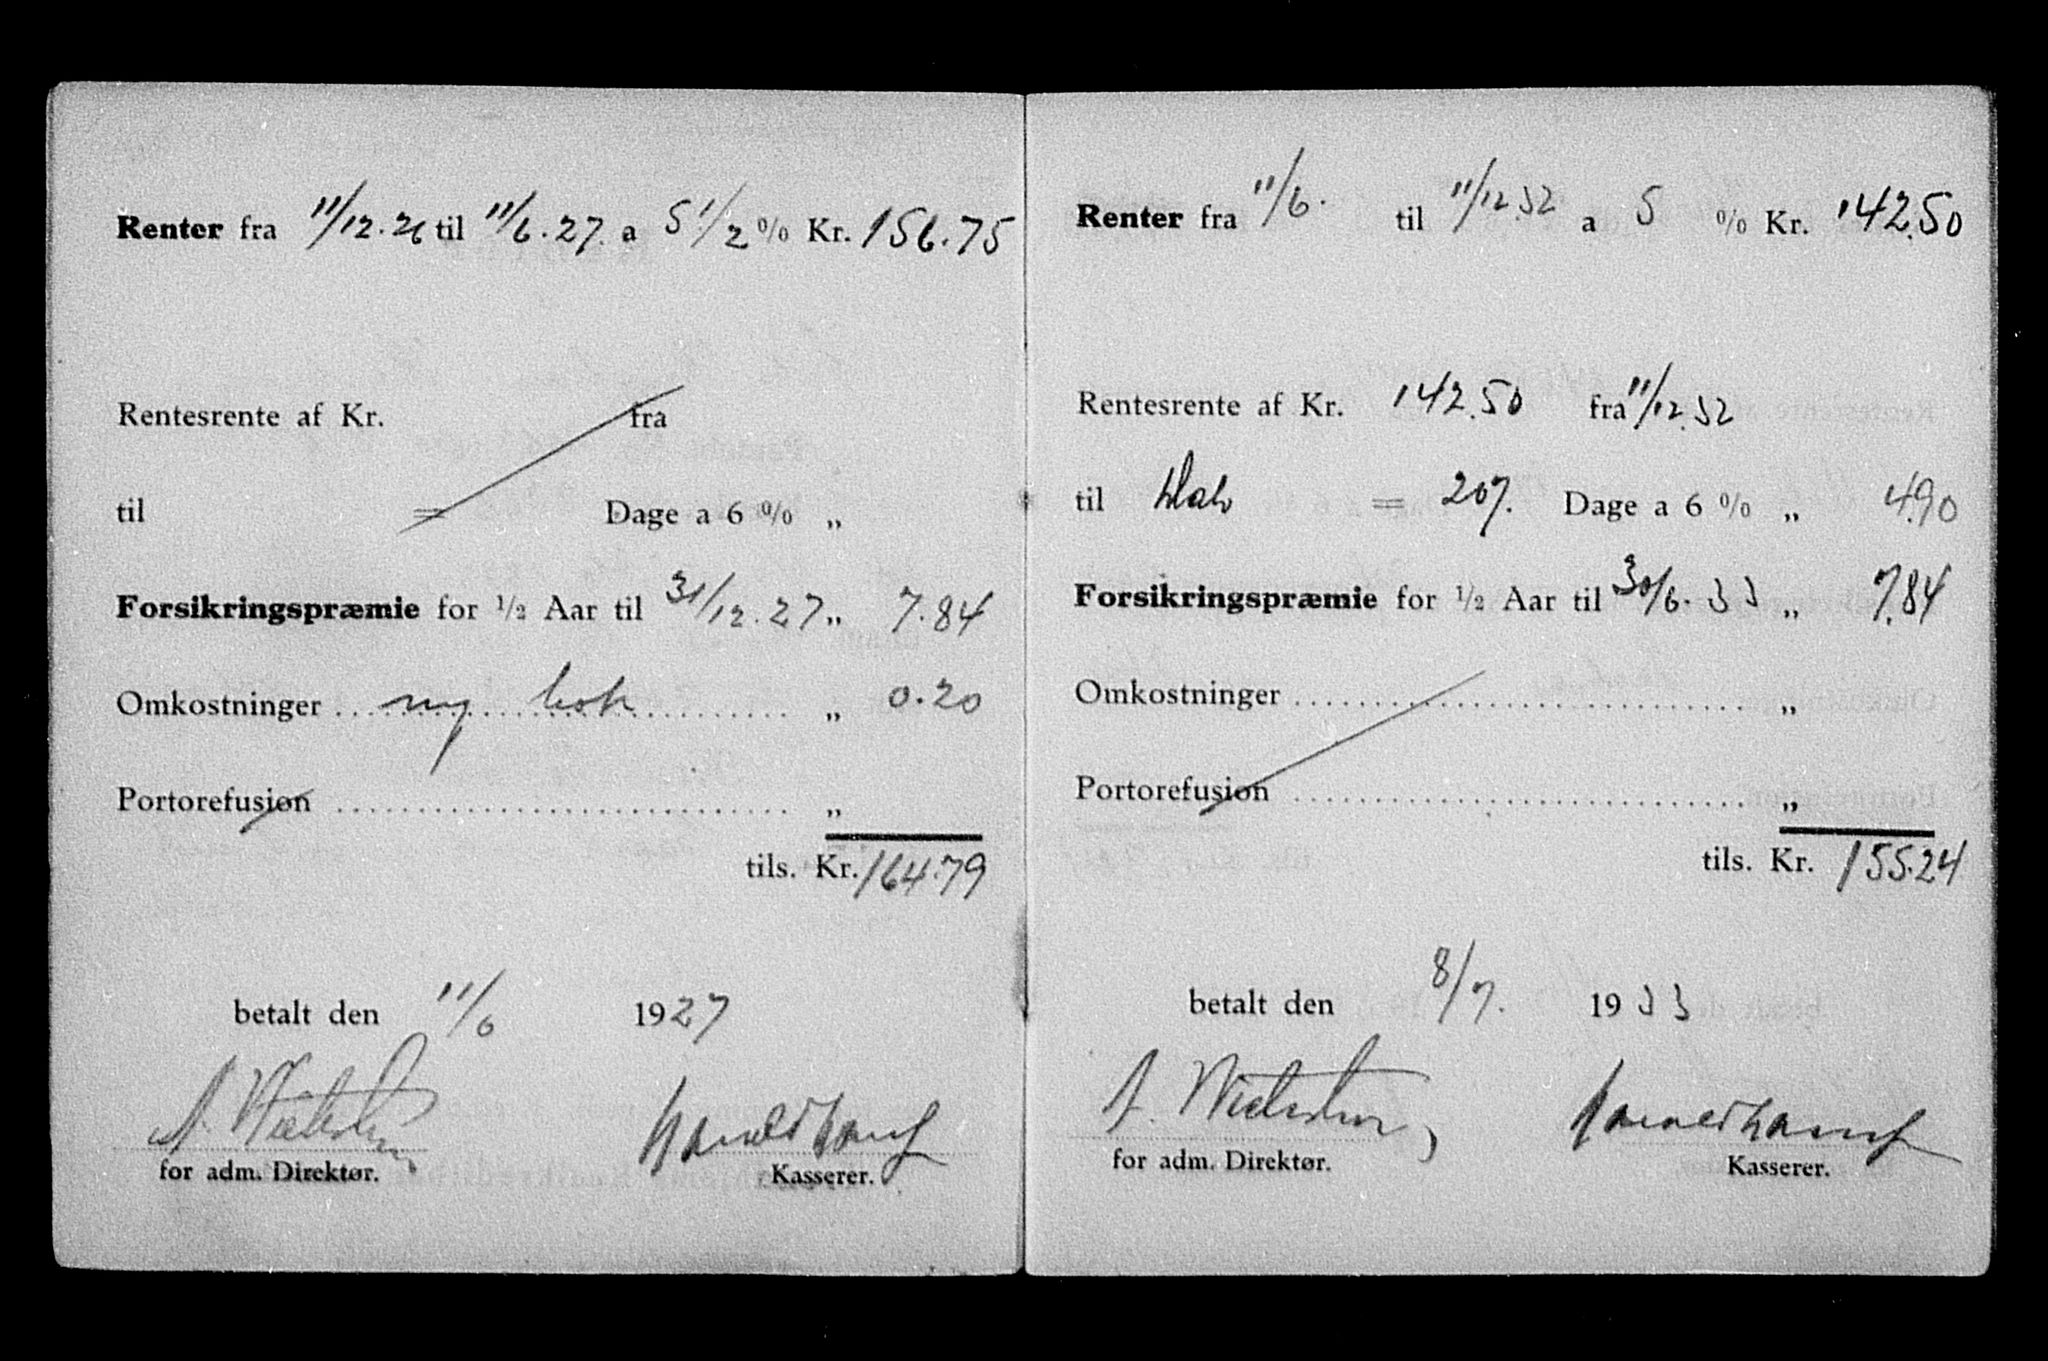 Renter fra 11/12.26 til 11/6.27. a 5 1/2 % Kr. 156.75
Rentesrente af Kr. fra
til = Dage a 6 % „
Forsikringspræmie for ½ Aar til 31/12.27 „ 7.84
Omkostninger ny bok „ 0.20
Portorefusion „
tils. Kr. 164.79
betalt den 11/6 1927
for adm. Direktør. Kasserer.
Renter fra 11/6. til 11/12.32 a 5 % Kr. 142.50
Rentesrente af Kr. 142.50 fra 11/12.32
til = 207. Dage a 6 % „ 4.90
Forsikringspræmie for ½ Aar til 30/6.33 „ 7.84
Omkostninger „
Portorefusion „
tils. Kr. 155.24
betalt den 8/7. 1933
for adm. Direktør. Kasserer.